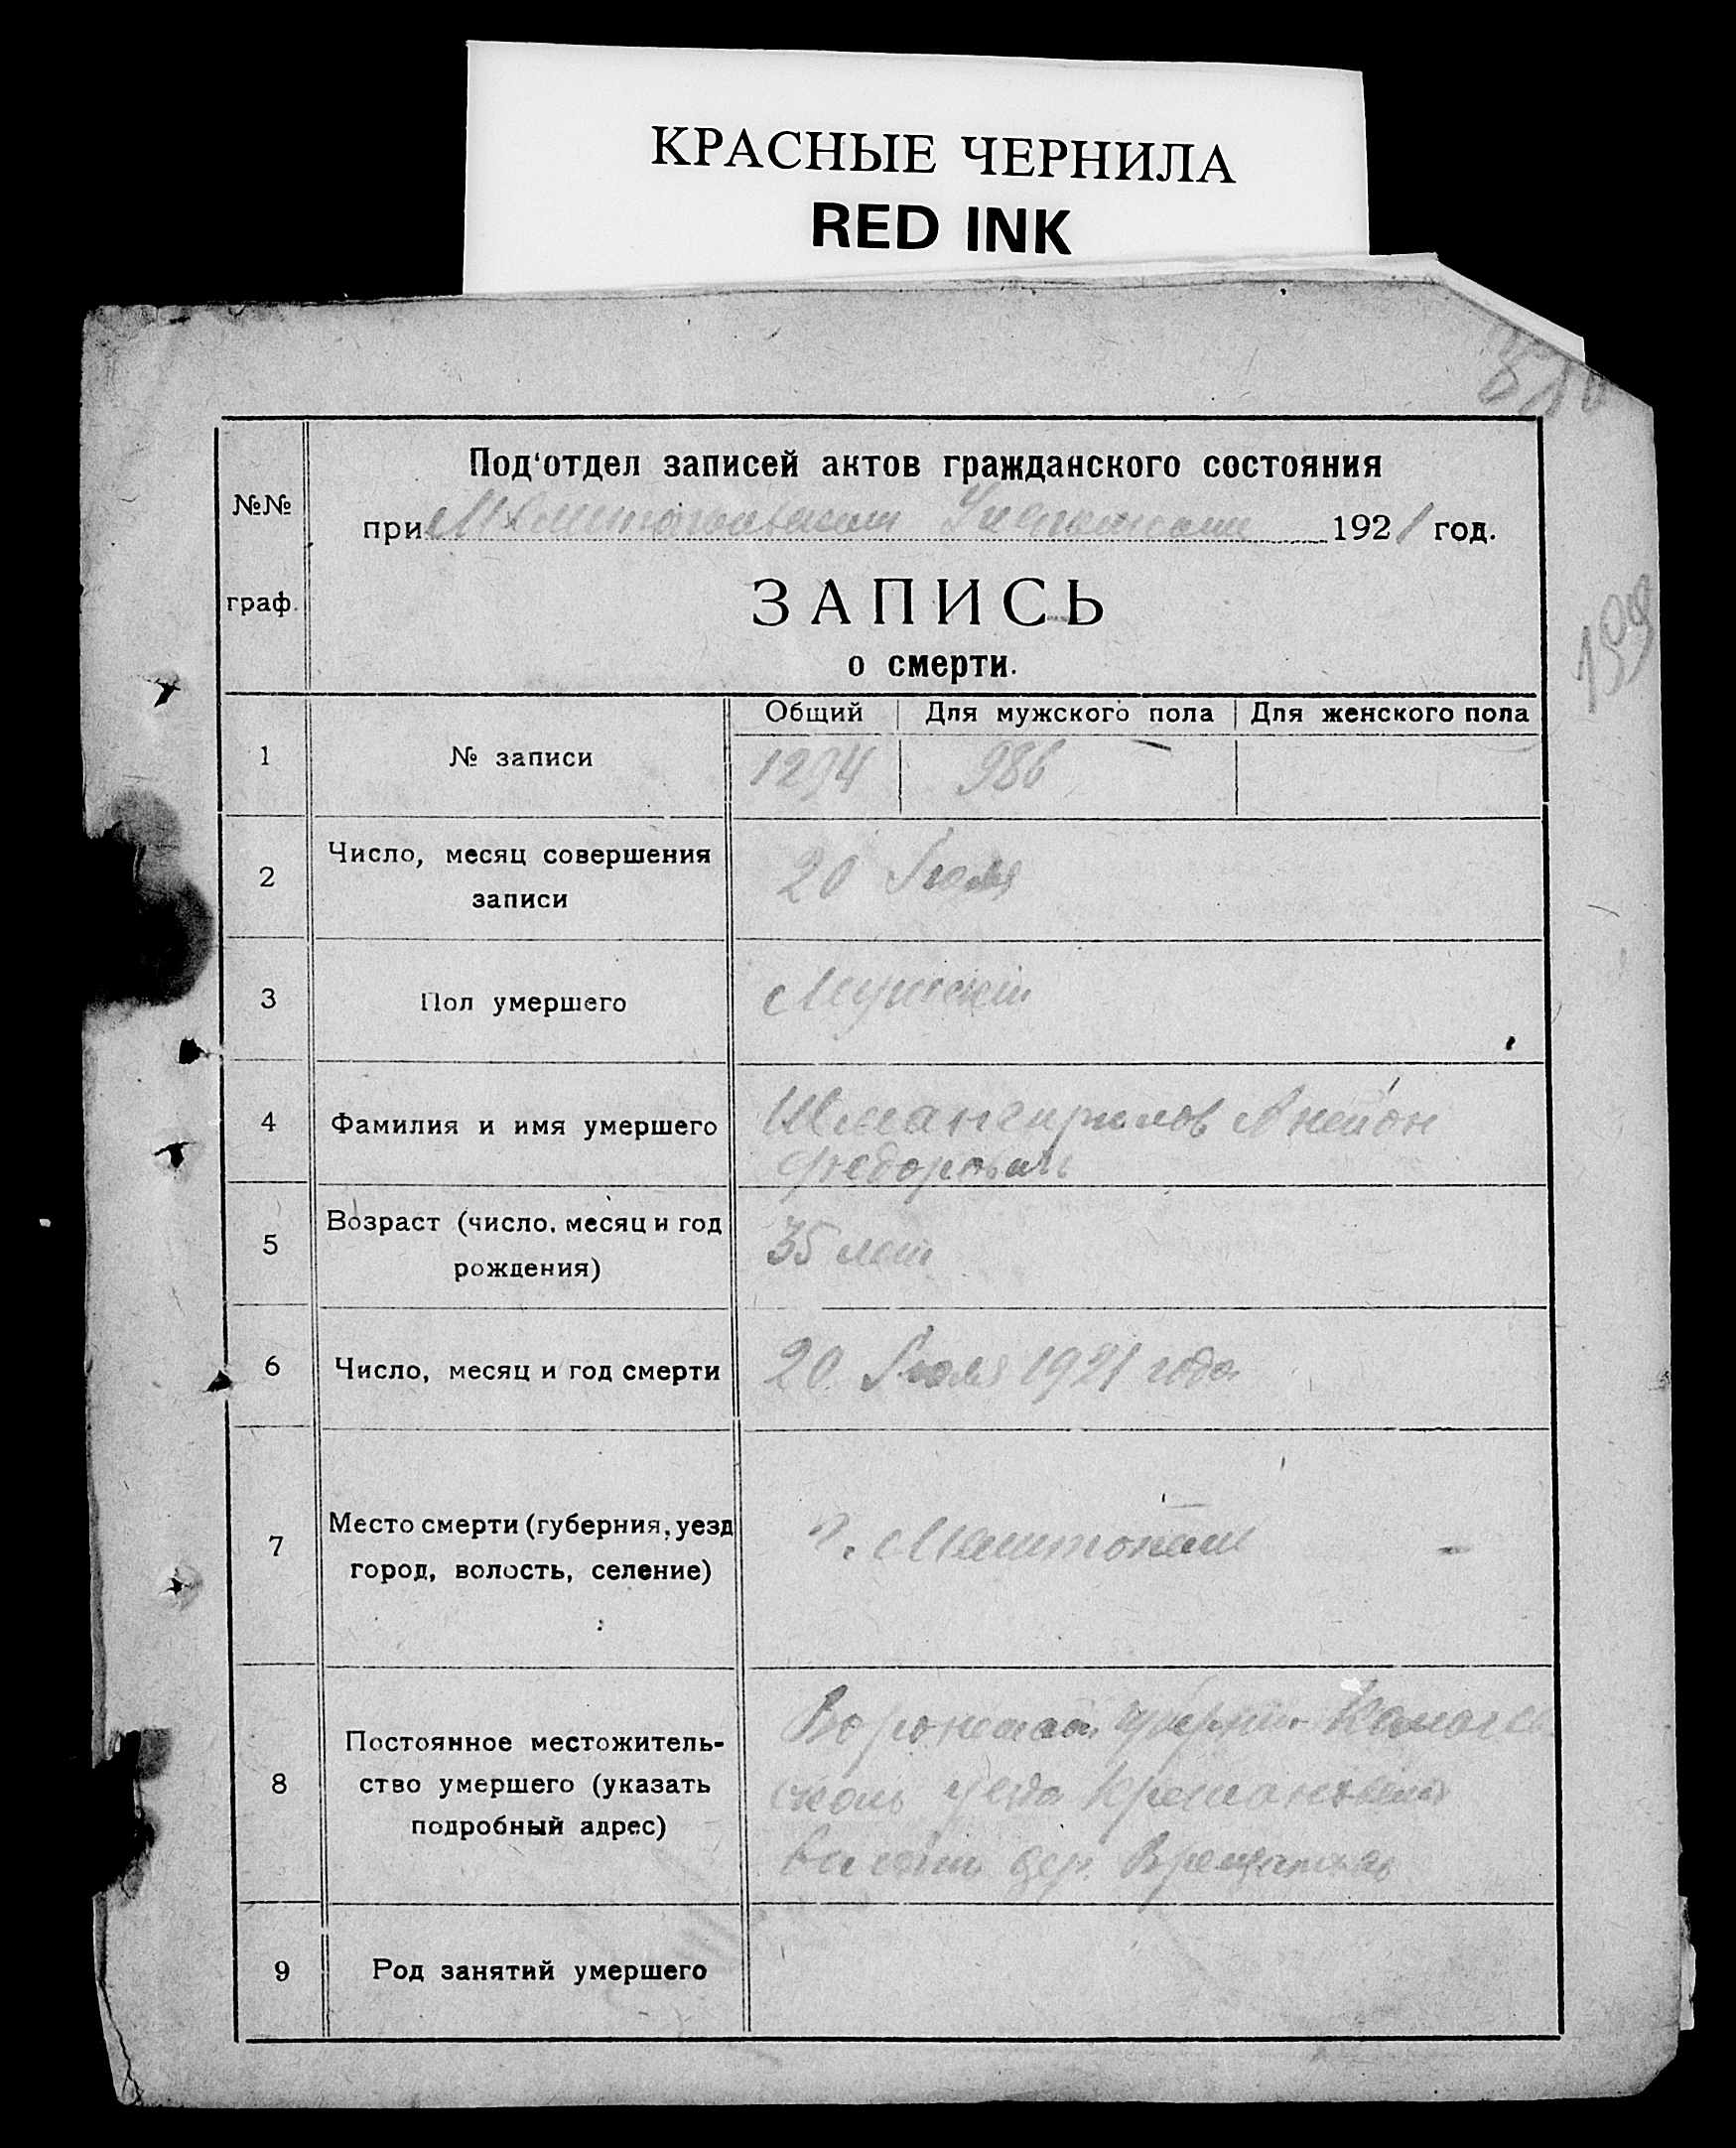 КРАСНЫЕ ЧЕРНИЛА
RED INK
Под'отдел записей актов гражданского состояния
№№
при 1921 год.
граф.
ЗАПИСЬ
о смерти.
Общий Для мужского пола Для женского пола
1 № записи 1294 986
2 Число, месяц совершения 20 Июля
записи
199
3 Пол умершего Мужской
4 Фамилия и имя умершего
Федорович
5 Возраст (число, месяц и год 35 лет
рождения)
6 Число, месяц и год смерти 20 Июля 1921 года
7 Место смерти (губерния, уезд г.
город, волость, селение)
8 Постоянное местожитель- губернии
ство умершего (указать уезда
подробный адрес) дер.
9 Род занятий умершего